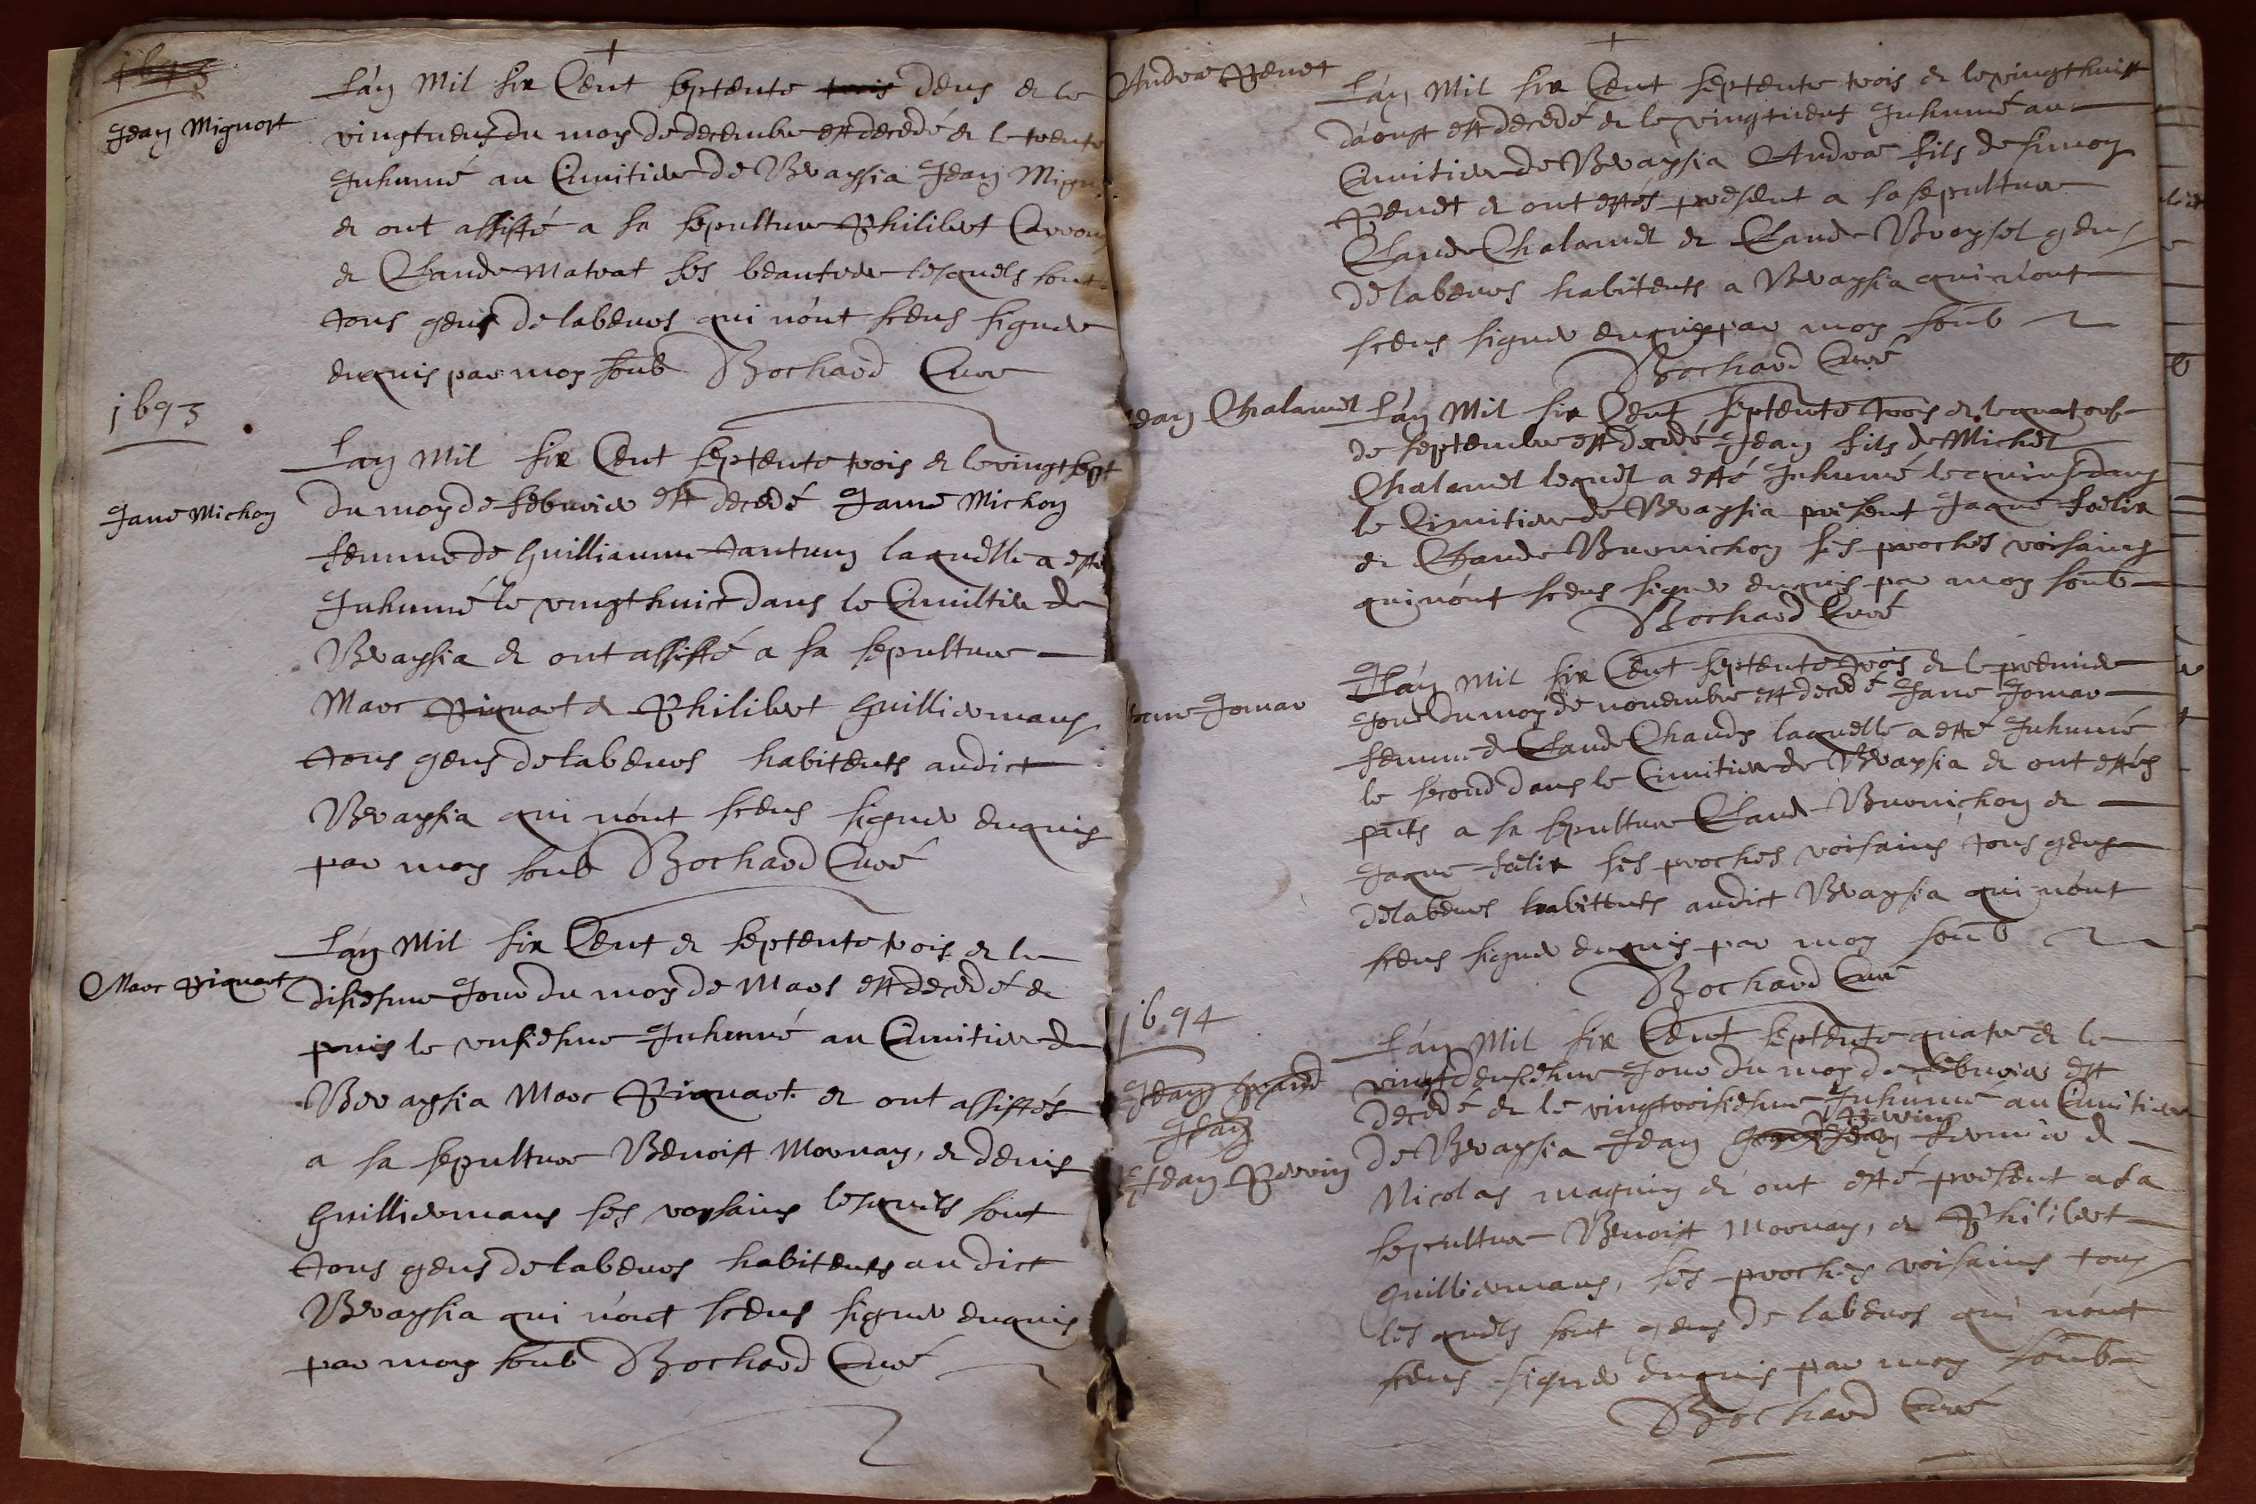 1673
Jean Mignort
L'an Mil six Cent septente trois deus et le
vingtneus du moy de decembre est decedé et le trente
Inhumé au Cimitier de Breaysia Jean Mign
et ont assisté a sa sepulture Philibert Carron
et Claude Matrat ses beaufrere lesquels sont
tous gens de labeurs qui n'ont sceus signer
enquis par moy soub Bochard Cure
1693
Jane Michon
L'an Mil six Cent septente trois et le vingt sept
du moy de febvrier est decedé Jane Michon
femme de Guilliaume tantum laquelle a esté
Inhumé le vingthuict dans le Cimiltier de
Breaysia et ont assisté a sa sepulture
Marc Piquart et Philibert Guilliermans
tous gens de labeurs habitents audict
Breaysia qui n'ont sceus signer enquis
par moy soub Bochard Curé
Marc Piquart
L'an Mil six Cent et septente trois et le
disiesme Jour du moy de Mars est decedé et
puis le unsiesme Inhumé au Cimitier de
Breaysia Marc Piquart et ont assistés
a sa sepulture Benoist Mornay, et denis
Guilliermans ses voysains lesquels sont
tous gens de labeurs habitents audict
Breaysia qui n'ont sceus signer enquis
par moy soub Bochard Curé
Andrea Penet
L'an Mil six Cent septente trois et le vingthuist
d'aoust est decedé et le vingtneus Inhumé au
Cimitier de Breaysia Andrea fils de simon
Penet et ont estés present a sa sepulture
Claude Chalamel et Claude Broysel gens
de labeurs habitents a Breaysia qui n'ont
sceus signer enquis par moy soub
Bochard Curé
Jean Chalamel
L'an Mil six Cent septente trois et le quators
de septembre est decedé Jean fils de Michel
Chalamel lequel a esté Inhumé le quinse dans
le Cimitier de Breaysia present Jaque faelix
et Claude Burnichon ses proches voisains
qui n'ont sceus signer enquis par moy soub
Bochard Curé
Jane Jomar
L'an Mil six Cent septente trois et le premier
Jour du moy de novembre est decedé Jane Jomar
femme de Claude Chaudy laquelle a esté Inhumé
le second dans le Cimitier de Breaysia et ont estés
pnts a sa sepulture Claude Burnichon et
Jaque faelix ses proches voisains tous gens
de labeurs habittents audict Breaysia qui n'ont
sceus signer enquis par moy soub
Bochard Curé
1694
Jean Grand
Jean
Jean Perrin
L'an Mil six Cent septente quatre et le
vingtdeusiesme Jour du moy de febvrier est
decedé et le vingtroisiesme Inhumé au Cimitier
Perrin
de Breaysia Jean fermier de
Nicolas magnin et ont esté present a sa
sepulture Benoist Mornay, et Philibert
Guilliermans, ses proches voisains tous
lesquels sont gens de labeurs qui n'ont
sceus signer enquis par moy soub
Bochard Curé